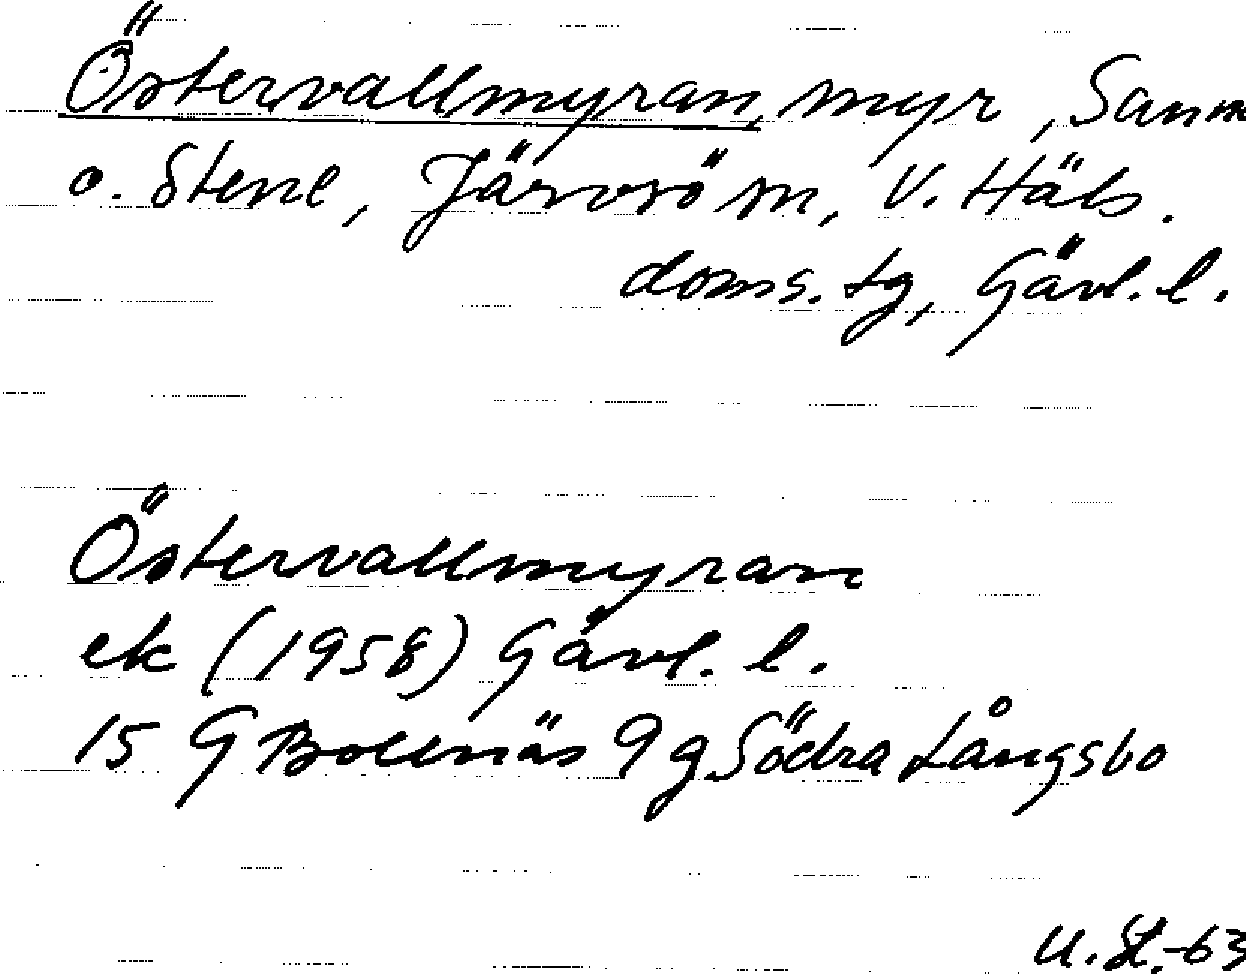 Östervallmyran, myr, Sann
o. Stene, Järvsö sn, V. Häls.
doms. tg, Gävl. l.
Östervallmyran
ek (1958) Gävl. l.
15 G Bollnäs 9 g Södra Långsbo
U. St. -63